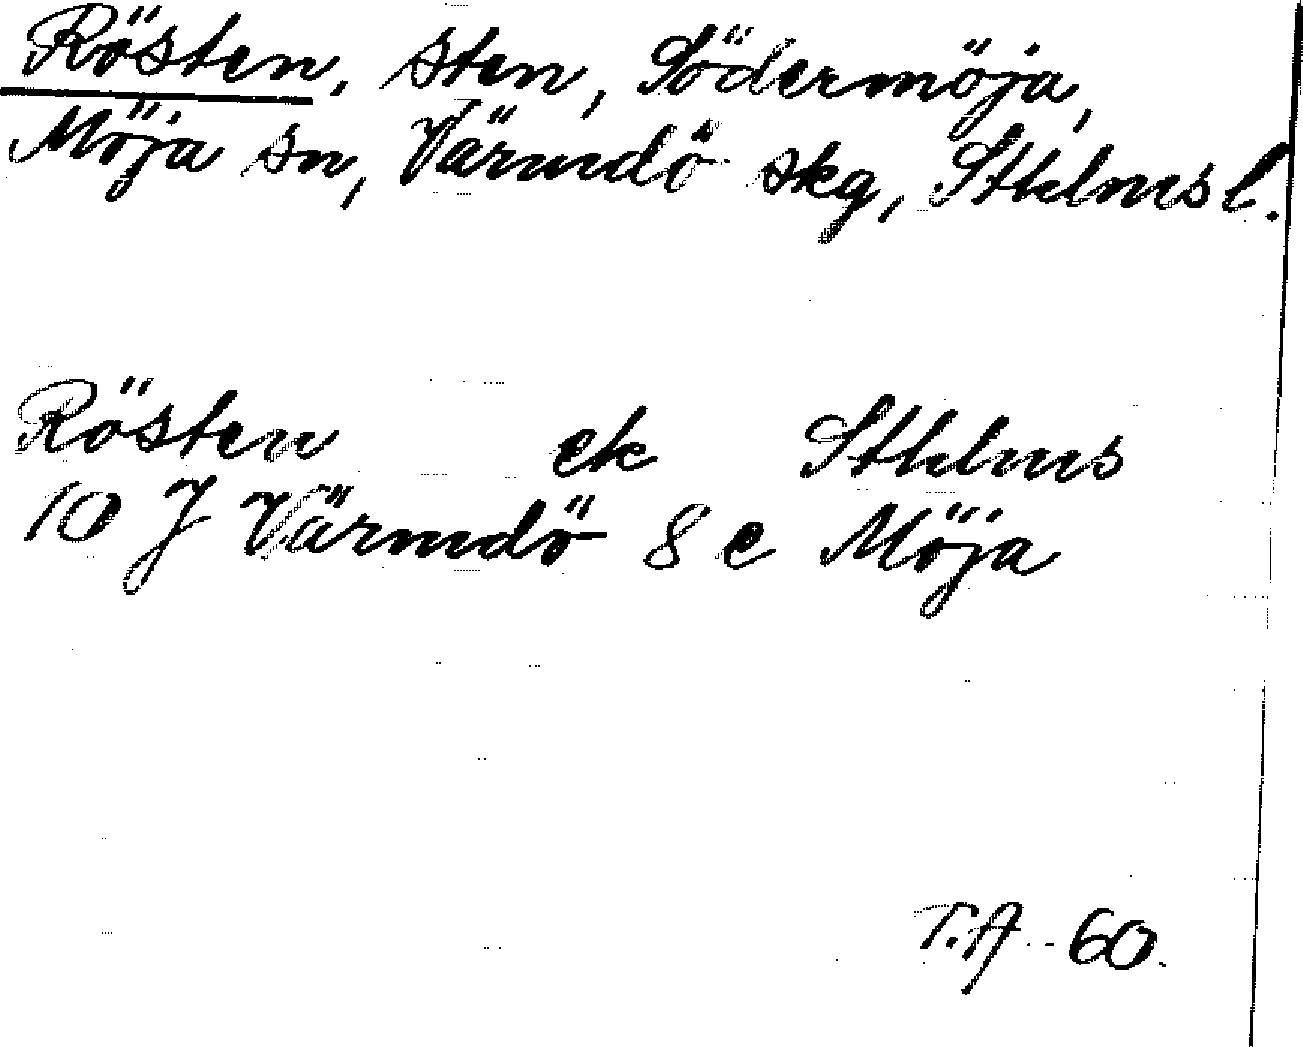 Rösten, sten, Södermöja,
Möja sn, Värmdö skg, Sthlms l.
Rösten ek Sthlms
10 J Värmdö 8 e Möja
T.A. 60.